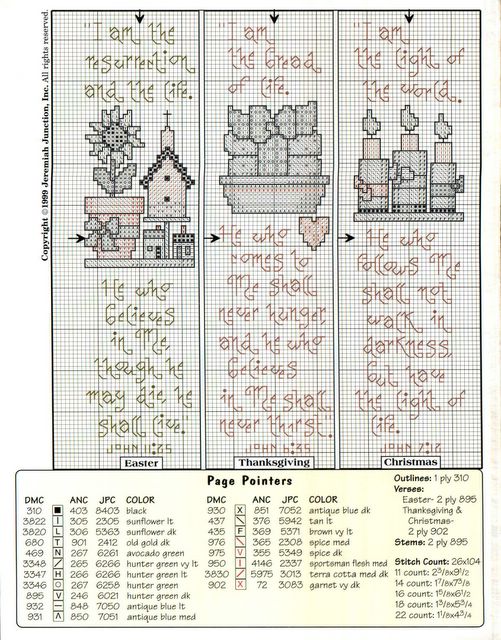 Copyright ©1999 Jeremiah Junction, Inc. All rights reserved.
"I am the
resurrection
and the life.
He who
believes
in Me,
though he
may die, he
shall live."
JOHN 11:25
Easter
"I am
the bread
of life.
He who
comes to
Me shall
never hunger,
and he who
believes
in Me shall
never thirst."
JOHN 6:35
Thanksgiving
"I am
the light of
the world.
He who
follows Me
shall not
walk in
darkness,
but have
the light of
life.
JOHN
Christmas
Page Pointers
DMC ANC JPC COLOR
310 ■ 403 8403 black
3822 I 305 2305 sunflower lt
3820 L 306 5363 sunflower dk
680 T 901 2412 old gold dk
469 N 267 6261 avocado green
3348 / 265 6266 hunter green vy lt
3347 H 266 6266 hunter green lt
3346 O 267 6258 hunter green
895 V 246 6021 hunter green dk
932 — 848 7050 antique blue lt
931 Λ 850 7051 antique blue med
DMC ANC JPC COLOR
930 X 851 7052 antique blue dk
437 \ 376 5942 tan lt
435 F 369 5371 brown vy lt
976 \ 365 2308 spice med
975 V 355 5349 spice dk
950 I 4146 2337 sportsman flesh med
3830 / 5975 3013 terra cotta med dk
902 X 72 3083 garnet vy dk
Outlines: 1 ply 310
Verses:
Easter- 2 ply 895
Thanksgiving &
Christmas-
2 ply 902
Stems: 2 ply 895
Stitch Count: 26x104
11 count: 2³/8x9¹/2
14 count: 1⁷/8x7³/8
16 count: 1⁵/8x6¹/2
18 count: 1³/8x5³/4
22 count: 1¹/8x4³/4